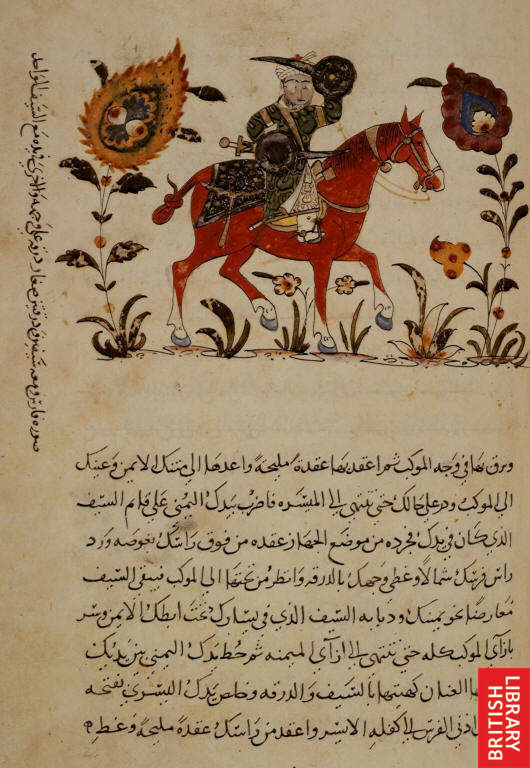 صورة فارس ومعه سيف ودرقتين صغار درقة على وجهه والاخرى في يده مع السيف
وبرق بها في وجه الموكب ثم اعقد بها عقدة مليحة واعدها الى متنك الايمن وعينك
الى الموكب ودر على حالك حتى تنتهى الى الميسره فاضرب بيدك اليمنى على قايم السيف
الذي كان في يدك فجرده من موضع الحصار عقده من فوق راسك بغوصه ورد
راس فرسك شمالا وغطى وجهك بالدرقه وانظر من تحتها الى الموكب فيبقى السيف
معارضا نحو يمينك ودبابه السيف الذي في يسارك تحت ابطك الايمن وسر
بازآي الموكب كله حتى تنتهى الى ازآي الميمنه ثم حط يدك اليمنى بين يديك
العنان كهيتها بالسيف والدرقه وخلص يدك اليسرى بفتحه
اذنى الفرس الى كفله الايسر واعقد من راسك عقدة مليحة وغط
BRITISH
LIBRARY